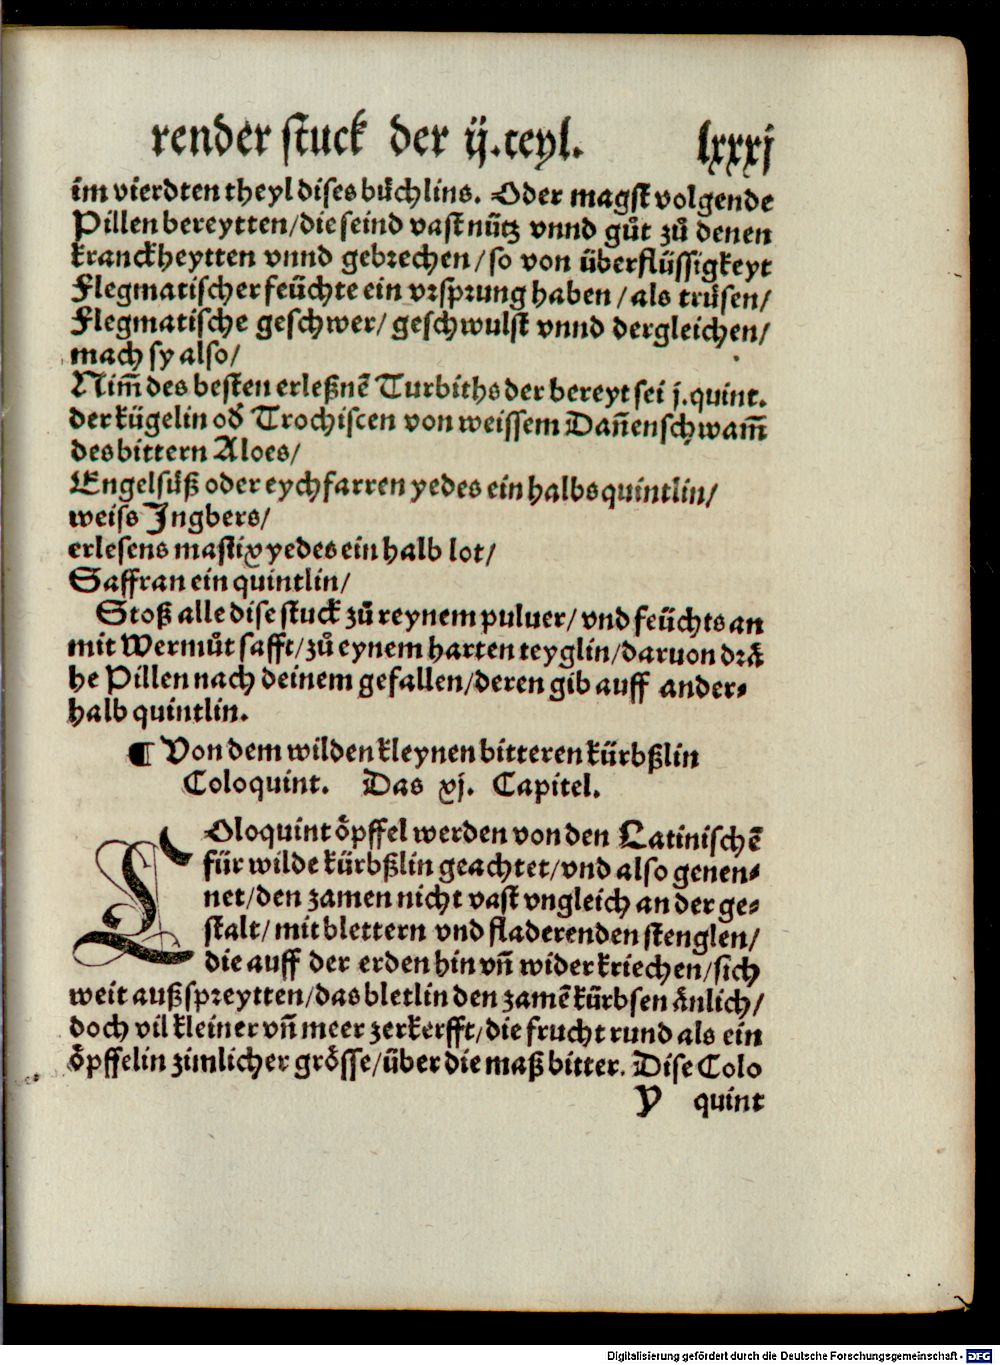 render stuck der ij.teyl. lxxxj
im vierdten theyl dises bůchlins. Oder magst volgende
Pillen bereytten/die seind vast nütz vnnd gůt zů denen
kranckheytten vnnd gebrechen/so von überflüssigkeyt
Flegmatischer feüchte ein vrsprung haben/als trůsen/
Flegmatische geschwer/geschwulst vnnd dergleichen/
mach sy also/
Nim̄ des besten erleßnē Turbiths der bereyt sei j.quint.
der kügelin oď Trochiscen von weissem Dan̄enschwam̄
des bittern Aloes/
Engelsůß oder eychfarren yedes ein halbs quintlin/
weiss Ingbers/
erlesens mastix yedes ein halb lot/
Saffran ein quintlin/
Stoß alle dise stuck zů reynem puluer/vnd feüchts an
mit Wermůt safft/zů eynem harten teyglin/daruon drå
he Pillen nach deinem gefallen/deren gib auff ander⸗
halb quintlin.
¶ Von dem wilden kleynen bitteren kürbßlin
Coloquint. Das xj. Capitel.
COloquint ŏpffel werden von den Latinischē
für wilde kürbßlin geachtet/vnd also genen⸗
net/den zamen nicht vast vngleich an der ge⸗
stalt/mit blettern vnd fladerenden stenglen/
die auff der erden hin vn̄ wider kriechen/sich
weit außspreytten/das bletlin den zamē kürbsen ånlich/
doch vil kleiner vn̄ meer zerkerfft/die frucht rund als ein
ŏpffelin zimlicher grŏsse/über die maß bitter. Dise Colo
Y quint
Digitalisierung gefördert durch die Deutsche Forschungsgemeinschaft - DFG